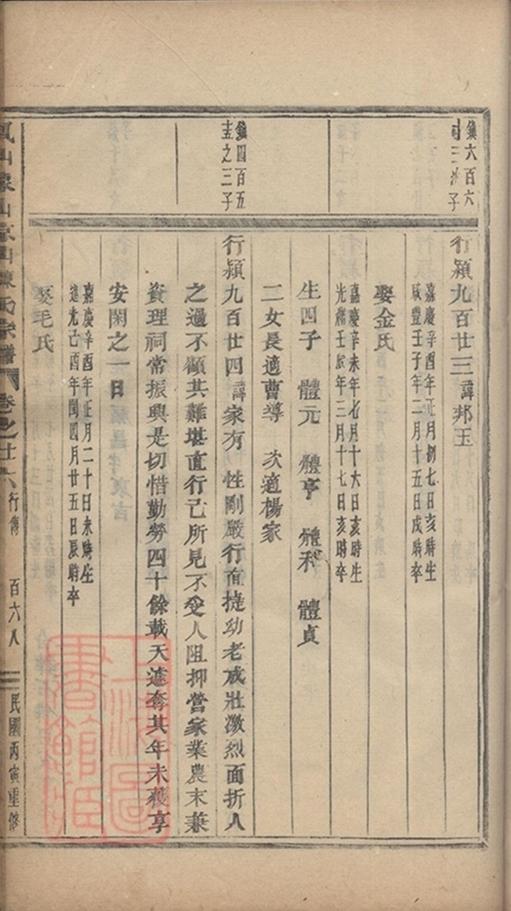 鎮六百六
十三次子
行潁九百廿三諱邦玉
嘉慶辛酉年正月初七日亥時生
咸豐壬子年二月十五日戌時卒
娶金氏
嘉慶辛未年七月十六日亥時生
光緒壬辰年三月十七日亥時卒
生四子 體元 體亨 體利 體貞
二女長適曹等 次適楊家
鎮四百五
十五之三子
行潁九百廿四諱家有 性剛嚴行直捷幼老咸壯激烈面折人
之過不顧其難堪直行己所見不受人阻抑營家業農末兼
資理祠常振興是切惜勤勞四十餘載天遽奪其年未穫享
安閑之一日
嘉慶辛酉年正月二十日未時生
道光己酉年閏四月廿五日辰時卒
娶毛氏
陳氏宗譜 卷之廿六 行傳 百六八 民國丙寅重修